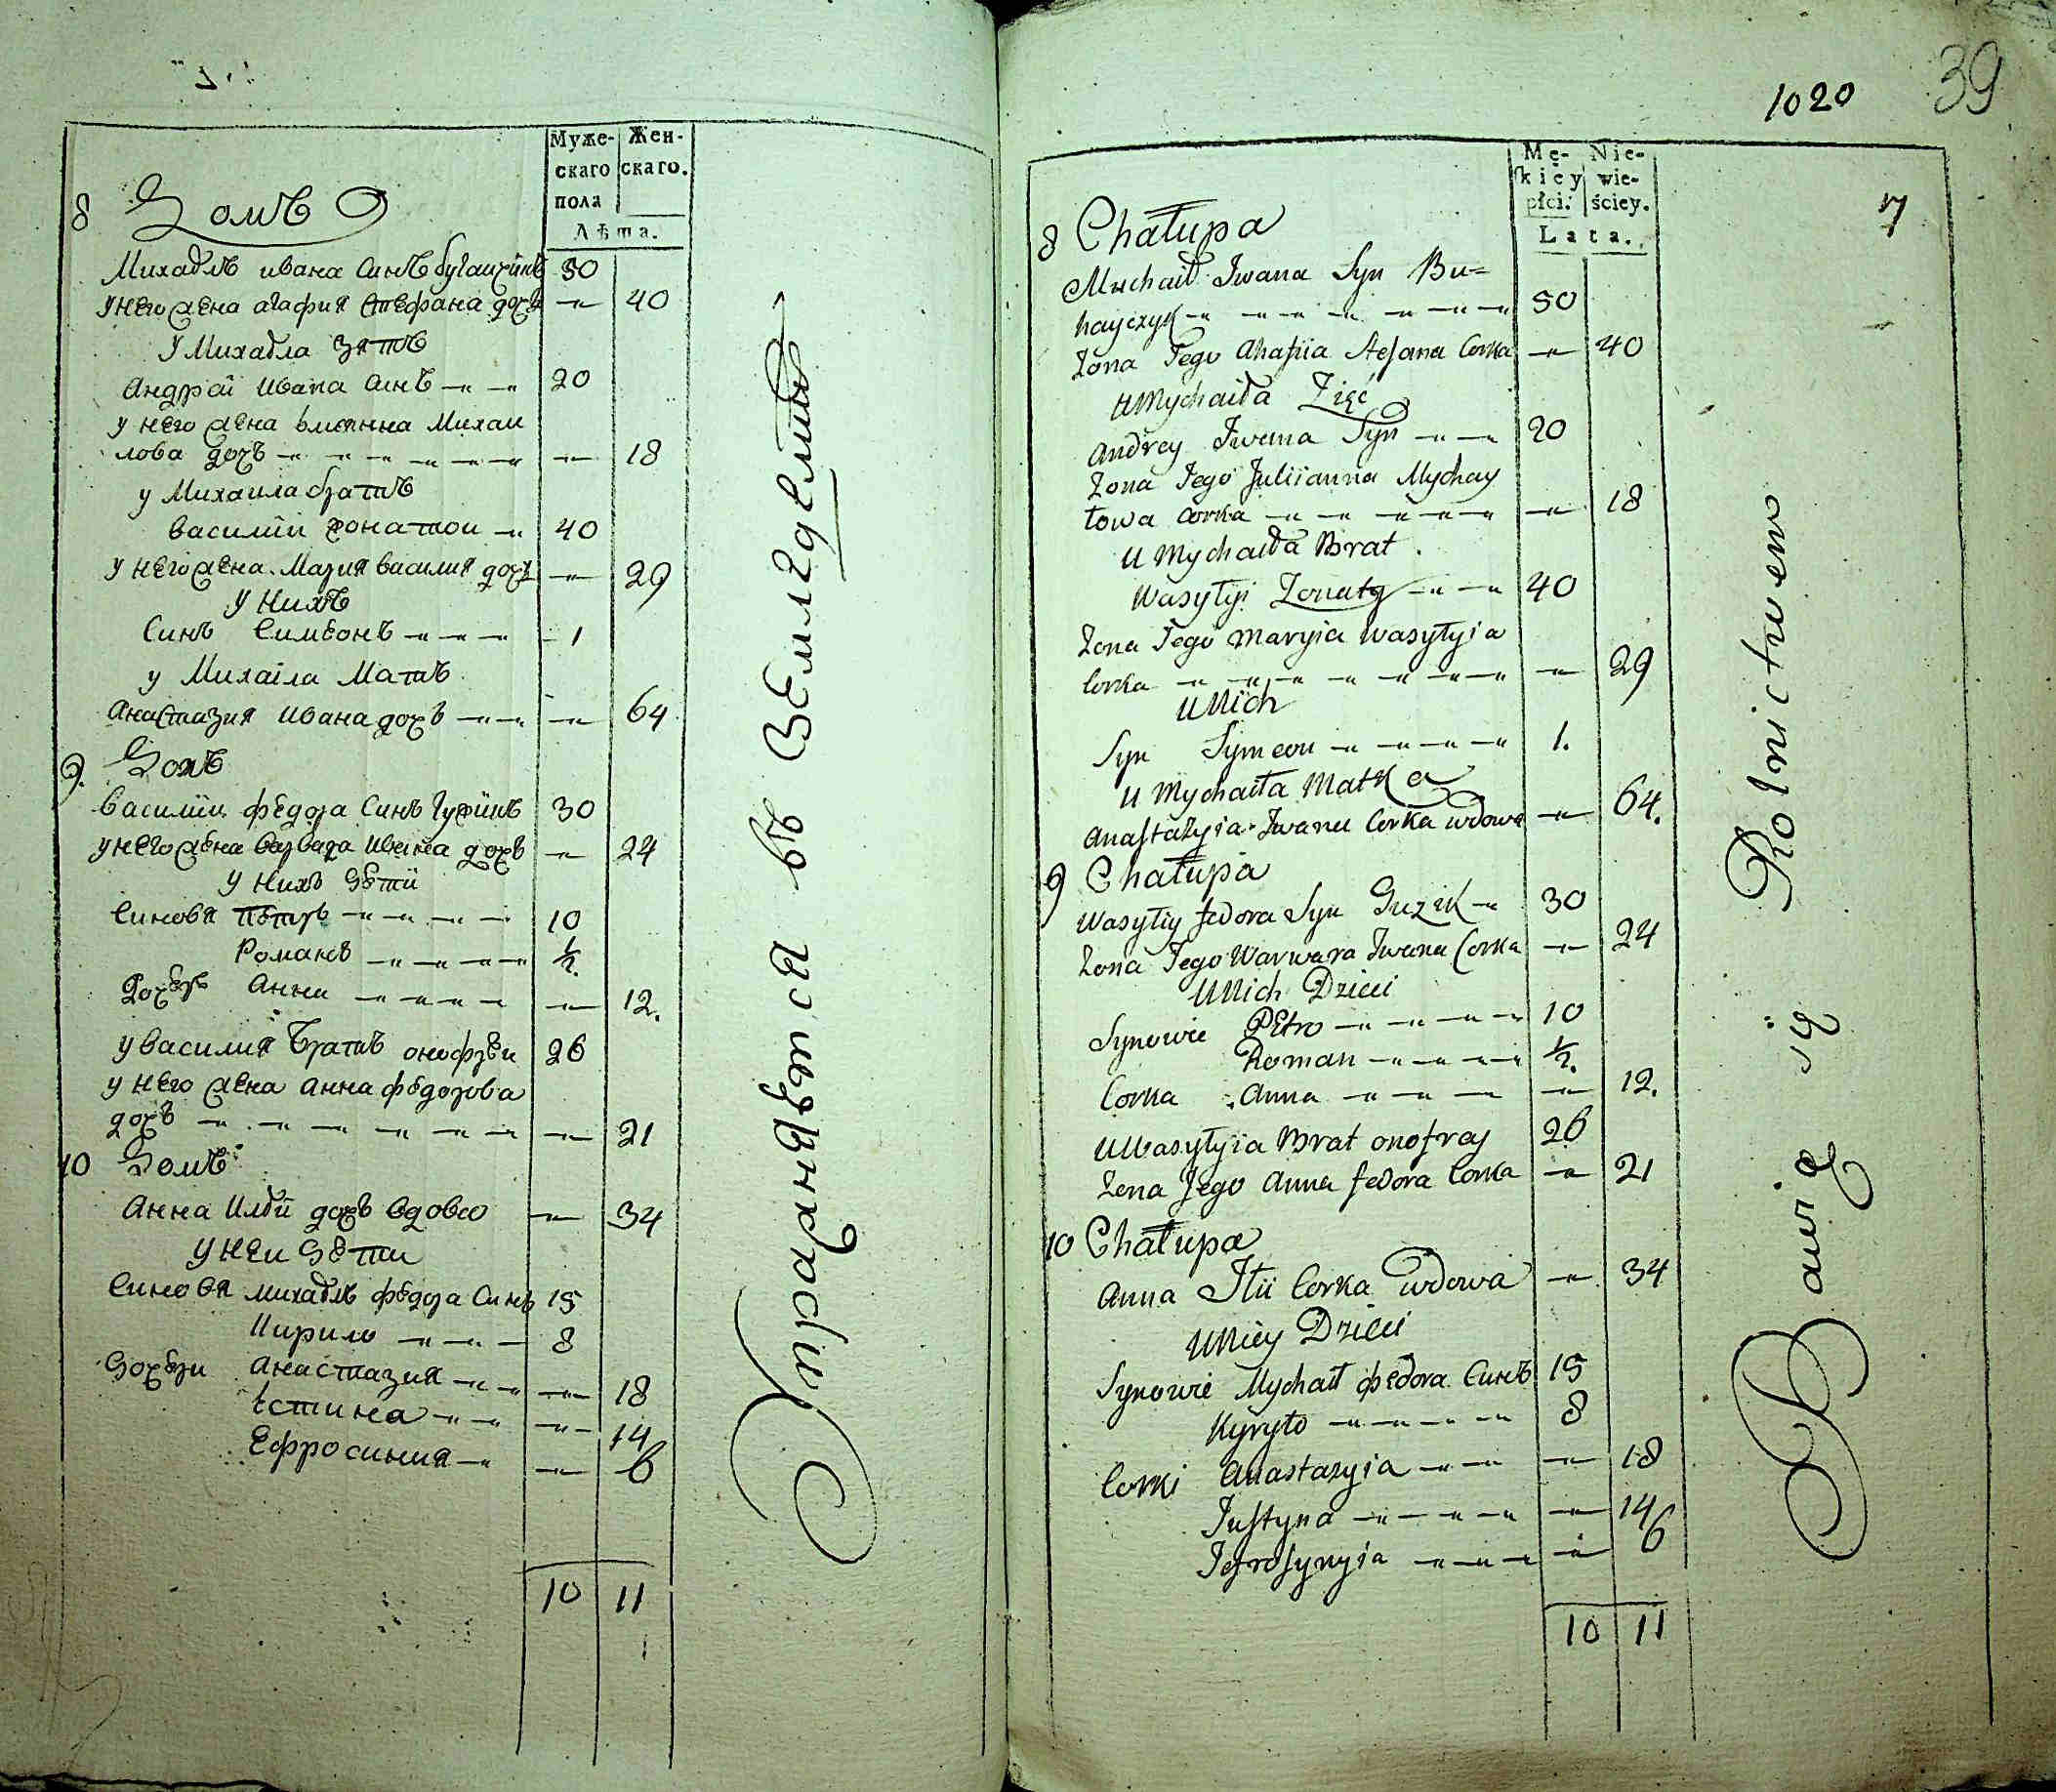 Муже-
скаго
пола
Жен-
скаго.
Лѣта.
8 Домъ
Михаилъ ивана Синъ бугаичикъ 50
у него жена агафия Стефана дочъ — 40
У Михаила зять
Андрей Ивана Синъ 20
у него жена Михаи
лова дочъ — 18
у Михаила братъ
василий жонатои 40
у него жена Мария василия дочъ — 29
у нихъ
Синъ Симеонъ 1
у Михаила Мать
Анастазия Ивана дочъ — 64
9. Домъ
василий федора Синъ Гузикъ 30
у него жена варвара Ивана дочъ — 24
у нихъ дети
Синовя Петръ 10
Романъ ½
Дочеръ Анна — 12.
у василия Братъ онофреи 26
у него жена анна федорова
дочъ — 21
10 Домъ
Анна Илии дочъ вдова — 34
у неи дети
Синовя михаилъ федора Синъ 15
Кирило 8
Дочери анастазия — 18
Естина — 14
Ефросиния — 6
10 11
Упражняется въ Земледелии
1020
39
Mę-
ſkiey
płci.
Nie-
wie-
ściey.
Lata.
7
8 Chałupa
Mychaił Jwana Syn Bu=
hayczyk 50
Zona Jego Ahafiia Stefana Corka — 40
U Mychaiła Zięć
Andrey Jwana Syn 20
Zona Jego Juliianna Mychay
łowa Corka — 18
U Mychaiła Brat.
Wasylyi Zonaty 40
Zona Jego Maryia Wasylyia
Corka — 29
U Nich
Syn Symeon 1.
U Mychaiła Matka
Anaſtazyia Jwana Corka wdowa — 64.
9 Chałupa
Wasyliy fedora Syn Guzik 30
Zona Jego Warwara Jwana Corka — 24
U Nich Dzieci
Synowie Petro 10
Roman ½.
Corka Anna — 12.
U Wasylyia Brat onofray 26
Zona Jego Anna fedora Corka — 21
10 Chałupa
Anna Jlii Corka wdowa — 34
U Niey Dzieci
Synowie Mychaił федора Синъ 15
Kyryło 8
Corki Anastazyia — 18
Juſtyna — 14
Jefroſynyia — 6
10 11
Bawią się Rolnictwem